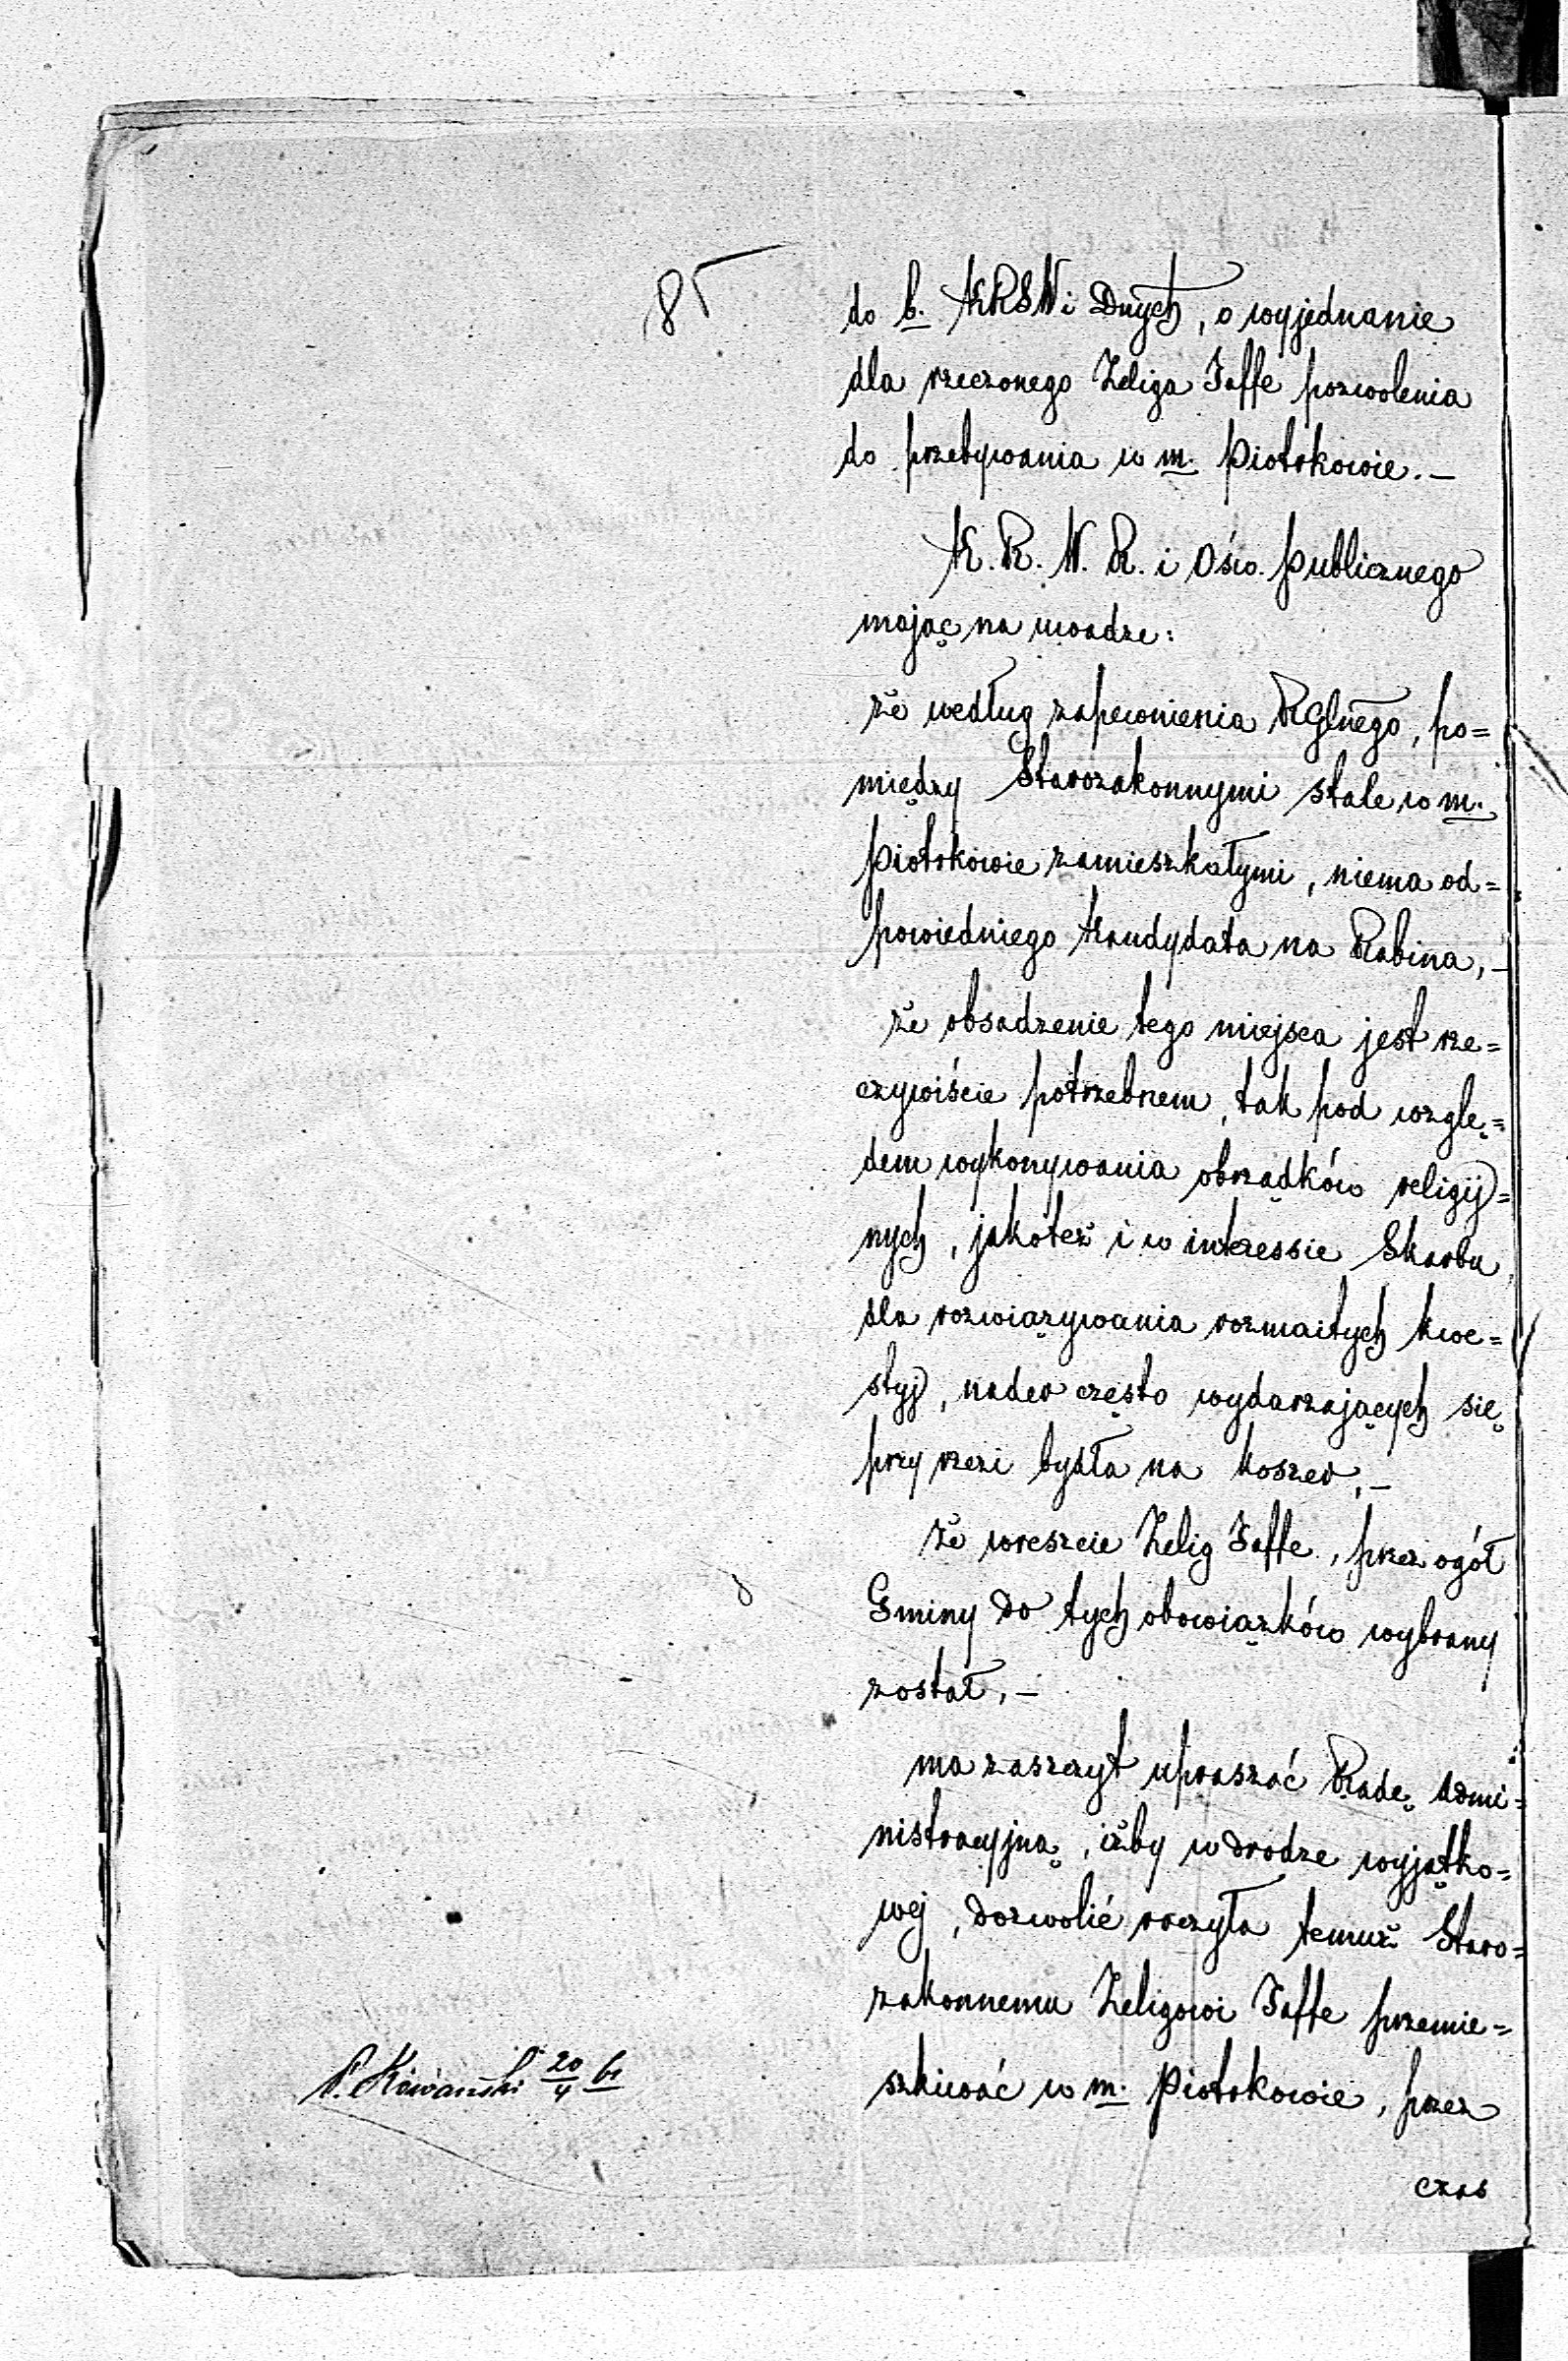 85
do b. KRSW i Dnych, o wyjednanie
dla rzeczonego Zeliga Jaffe pozwolenia
do przebywania w m. Piotrkowie. —
K. R. W. R. i Ośw. Publicznego
mając na uwadze:
że według zapewnienia RGlnego, po=
między Starozakonnymi stale w m.
Piotrkowie zamieszkałymi, niema od=
powiedniego Kandydata na Rabina, —
że obsadzenie tego miejsca jest rze=
czywiście potrzebnem, tak pod wzglę=
dem wykonywania obrządków religij=
nych, jakoteż i w interessie Skarbu
dla rozwiązywania rozmaitych kwe=
styj, nader często wydarzających się
przy rzezi bydła na koszer, —
że wreszcie Zelig Jaffe, przez ogół
Gminy do tych obowiązków wybrany
został, —
ma zaszczyt upraszać Radę Admi=
nistracyjną, iżby w drodze wyjątko=
wej, dozwolić raczyła temuż Staro=
zakonnemu Zeligowi Jaffe przemie=
szkiwać w m. Piotrkowie, przez
czas
20/4 61